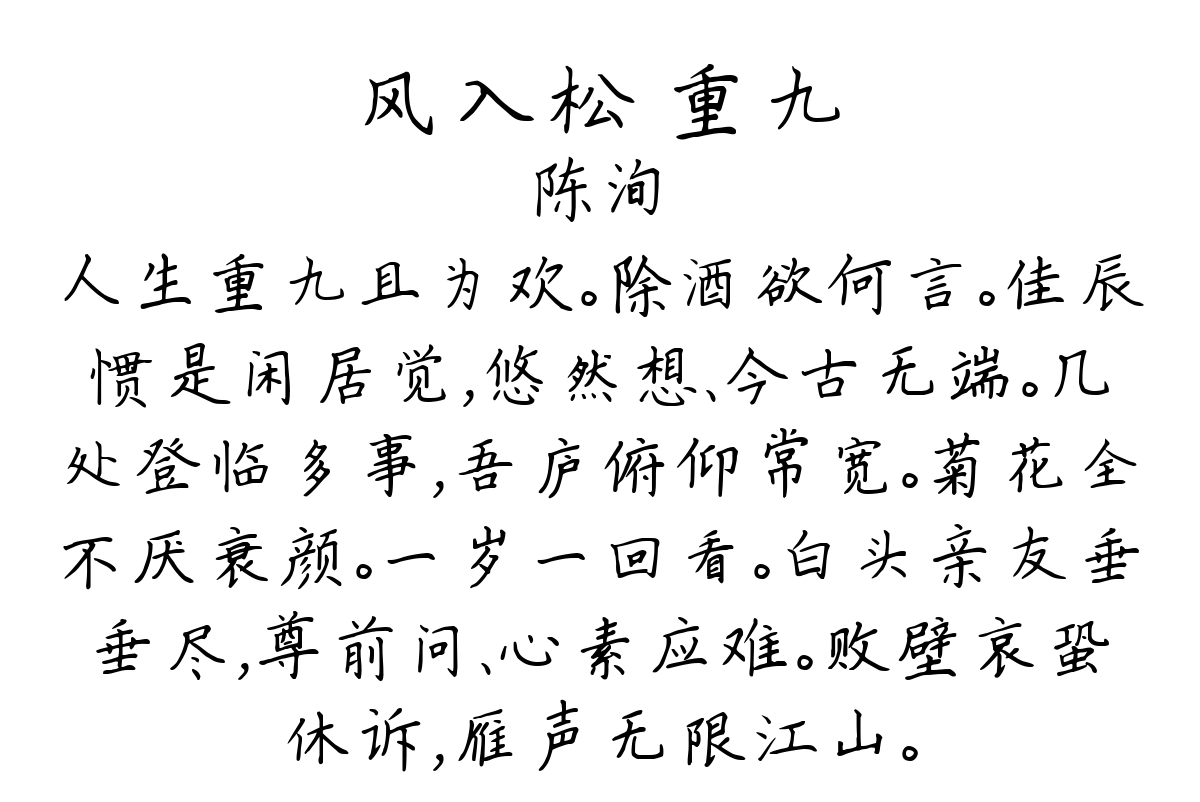 风入松 重九
陈洵
人生重九且为欢。除酒欲何言。佳辰
惯是闲居觉,悠然想、今古无端。几
处登临多事,吾庐俯仰常宽。菊花全
不厌衰颜。一岁一回看。白头亲友垂
垂尽,尊前问、心素应难。败壁哀蛩
休诉,雁声无限江山。